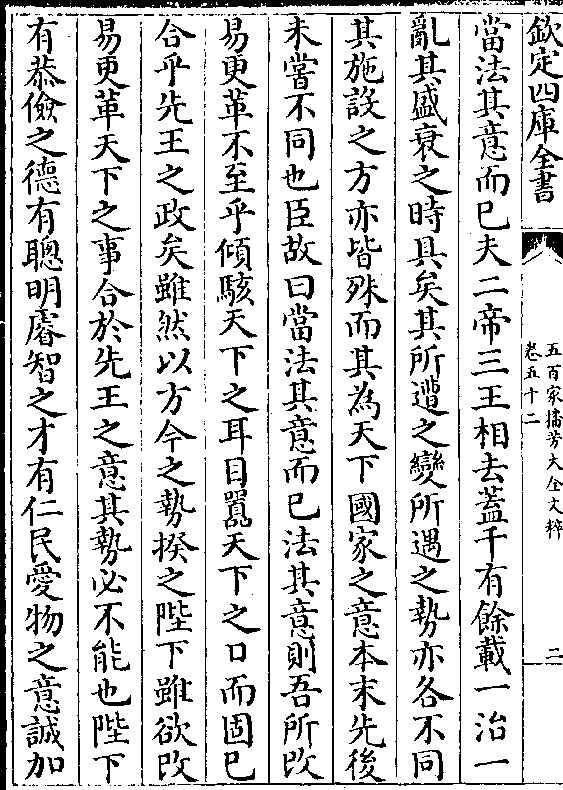 欽定四庫全書
五百家播芳大全文粹
卷五十二
二
當法其意而已夫二帝三王相去蓋千有餘載一治一
亂其盛衰之時具矣其所遭之變所遇之勢亦各不同
其施設之方亦皆殊而其為天下國家之意本末先後
未嘗不同也臣故曰當法其意而已法其意則吾所改
易更革不至乎傾駭天下之耳目囂天下之口而固已
合乎先王之政矣雖然以方今之勢揆之陛下雖欲改
易更革天下之事合於先王之意其勢必不能也陛下
有恭儉之德有聰明睿智之才有仁民愛物之意誠加